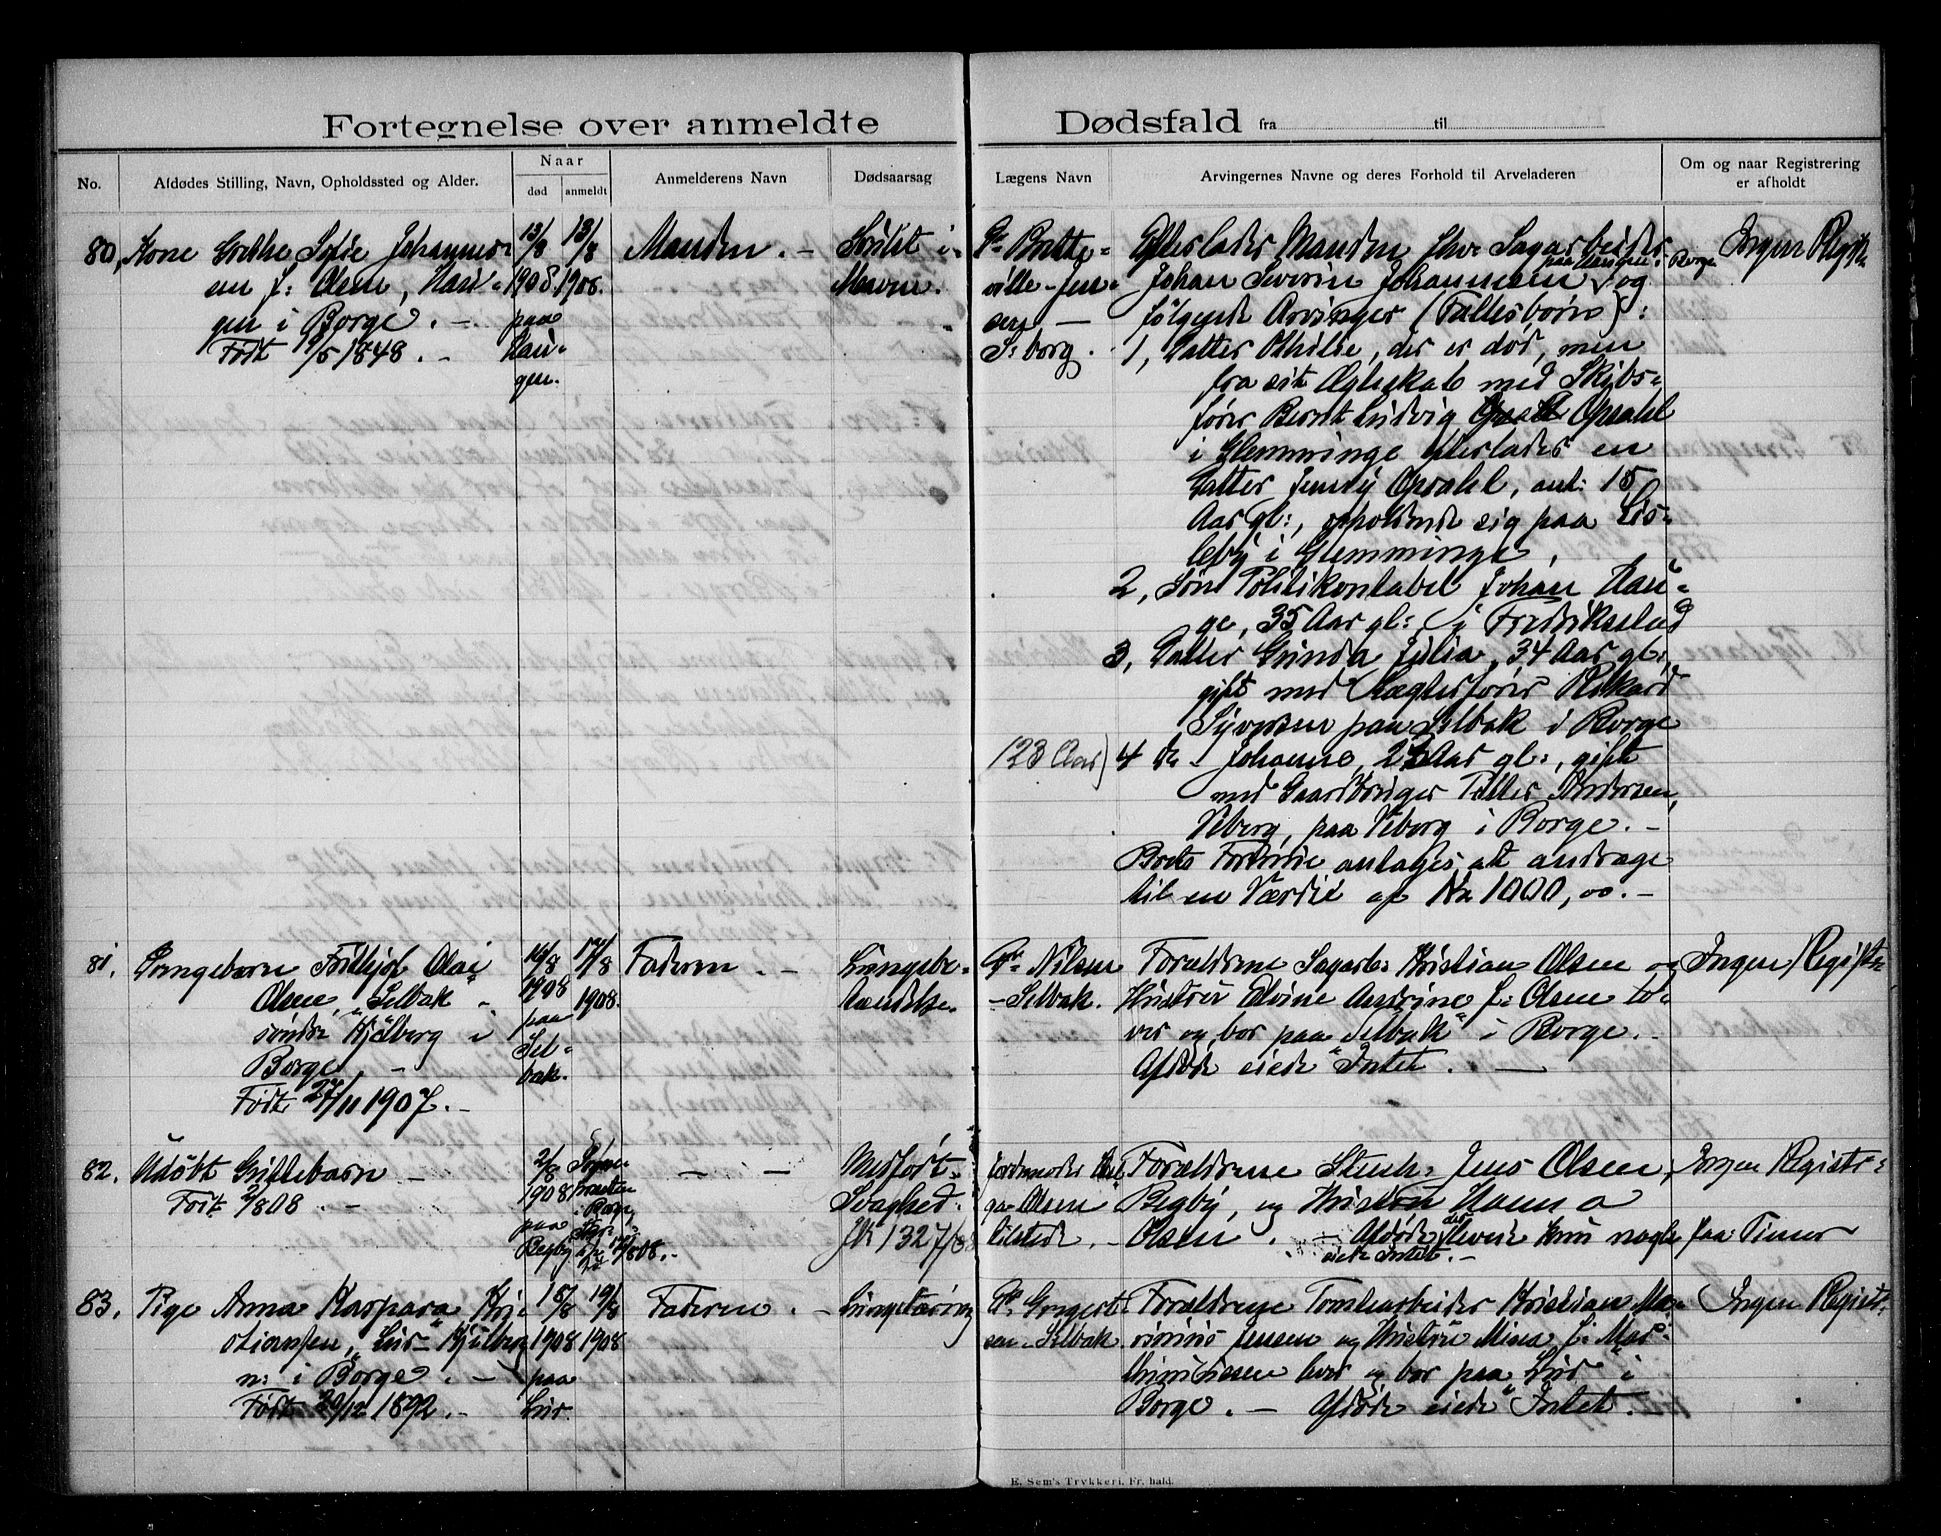 Fortegnelse over anmeldte Dødsfald fra til
No.
Afdødes Stilling, Navn, Opholdssted og Alder.
Naar
død
anmeldt
Anmelderens Navn
Dødsaarsag
Lægens Navn
Arvingernes Navne og deres Forhold til Arveladeren
Om og naar Registrering
er afholdt
80, Kone Grethe Sofie Johannes-
sen f: Olsen, Hau-
gen i Borge. -
Født 1848. -
13/8
1908
paa
Hau-
gen.
13/8
1908.
Manden. -
i
Maven.
Dr Brette-
ville-Jen-
sen -
S:borg.
Efterlader Manden, Sagarbeider
Johan Severin Johannesen og
følgende Arvinger (Fællesbørn):
1, Datter Othilie, der er død, men
fra sit Ægteskab med Skibs-
fører Berndt Ludvig Opsahl
i Glemminge efterlader en
Datter Jenny Opsahl, ant: 15
Aar gl:, opholdende sig paa Lis-
leby i Glemminge,
2, Søn Politikonstabel Johan Hau-
ge, 35 Aar gl:, i Fredriksstad
3, Datter Gunda Julia, 34 Aar gl:,
gift med Lægterfører Rikard
paa Selbak i Borge
(23 Aar) 4 do - Johanne, 23 Aar gl:, gift
med Gaardbruger Petter Andersen
Viborg, paa Viborg i Borge. -
Boets Formue antages at andrage
til en Værdi af Kr 1000,00. -
Ingen Regist-
81. Drengebarn Fridtjof Olai
Olsen, "Selbak"
søndre Kjølberg i
Borge -
Født 27/11 1907. -
16/8
1908
paa
Sel-
bak.
17/8
1908.
Faderen. -
Lungebe-
tændelse.
Dr Nilsen
- Selbak.
Forældrene Sagarb: Kristian Olsen og
Hustru Elvine Andrine f: Olsen le-
ver og bor paa "Selbak" i Borge. -
Afdøde eiede Intet. -
Ingen Regist-
82. Udøbt Guttebarn -
Født 2/8 08. -
2/8
1908
paa
Begby
12/8 08. -
- -
Medfødt
Svaghed.
Jk 1327/8
Jordmoder Hel-
ga Olsen
tilstede. -
Forældrene Stenh: Jens Olsen,
Begby, og Hustru Hanna
Olsen. - Afdøde, der levede kun nogle faa Timer
eiede Intet. -
Ingen Registr-
83. Pige Anna Kaspara Kri-
stiansen, "Lur" Kjølberg
n: i Borge. -
Født 29/12 1892. -
15/8
1908
paa
Lur.
19/8
1908
Faderen. -
Lungetæring
Dr Gregert-
sen - Selbak.
Forældrene Tomtearbeider Kristian Ma-
Jensen og Hustru Mina f: Mar-
lever og bor paa "Lur" i
Borge. - Afdøde eiede Intet.
Ingen Regist-
E. Sem's Trykkeri, Fr. hald.